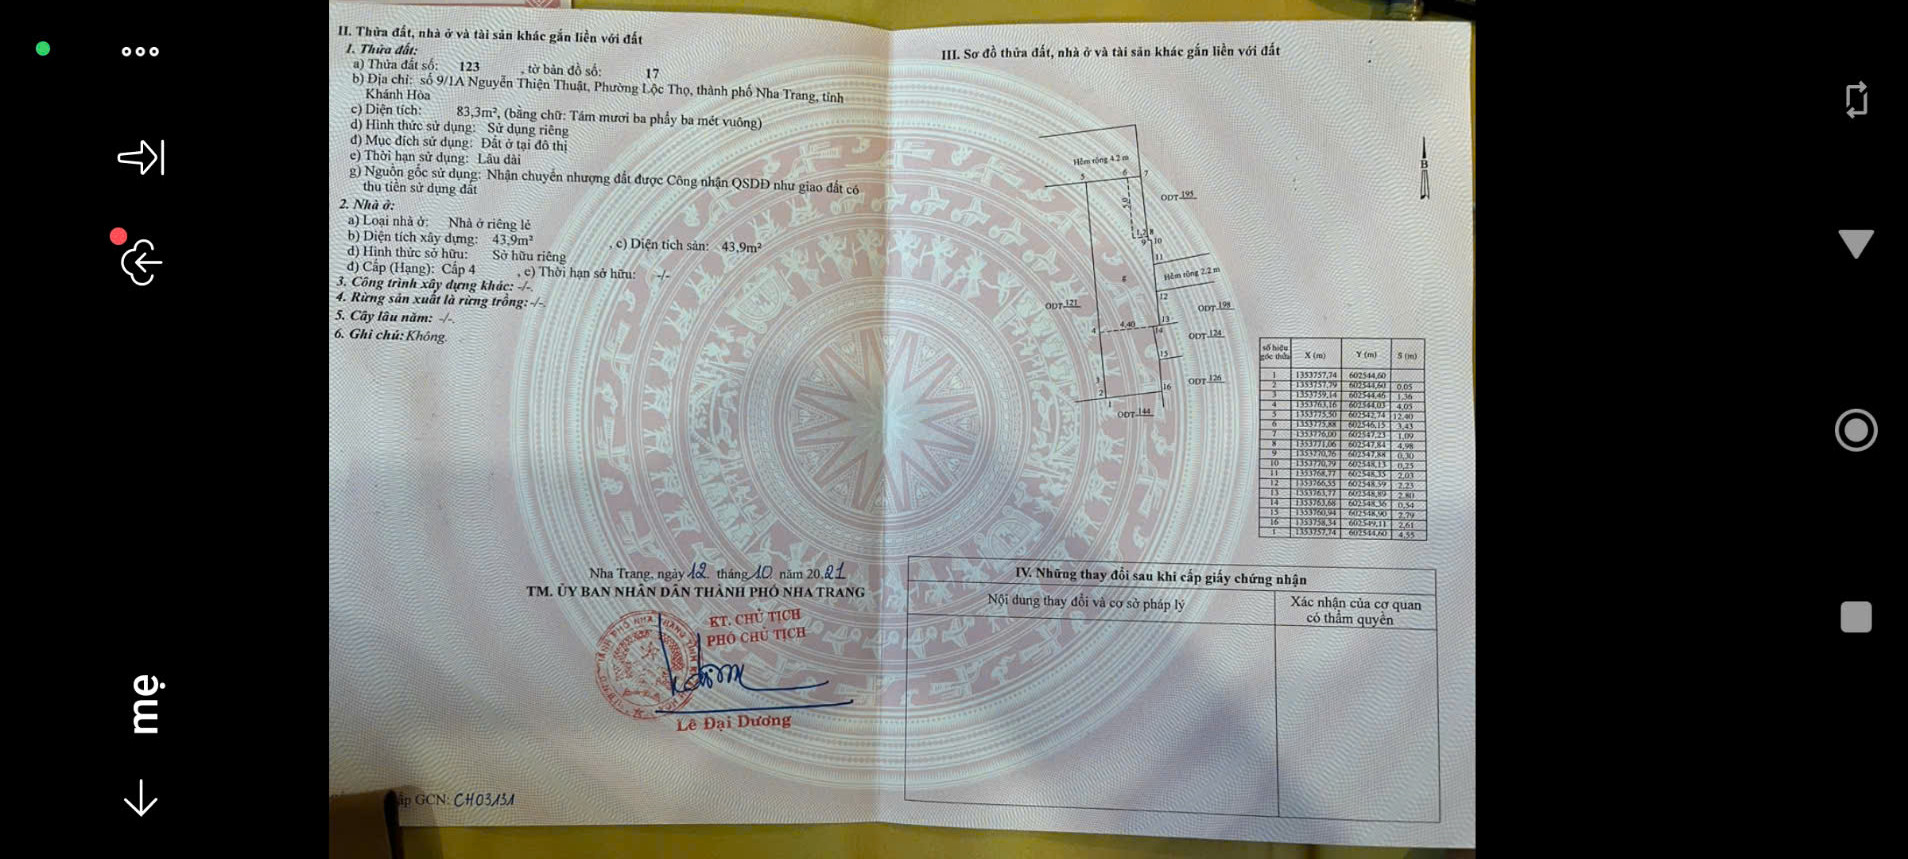 mẹ
II. Thửa đất, nhà ở và tài sản khác gắn liền với đất
1. Thửa đất:
a) Thửa đất số: 123 , tờ bản đồ số: 17
b) Địa chỉ: số 9/1A Nguyễn Thiện Thuật, Phường Lộc Thọ, thành phố Nha Trang, tỉnh
Khánh Hòa
c) Diện tích: 83,3m², (bằng chữ: Tám mươi ba phẩy ba mét vuông)
d) Hình thức sử dụng: Sử dụng riêng
đ) Mục đích sử dụng: Đất ở tại đô thị
e) Thời hạn sử dụng: Lâu dài
g) Nguồn gốc sử dụng: Nhận chuyển nhượng đất được Công nhận QSDĐ như giao đất có
thu tiền sử dụng đất
2. Nhà ở:
a) Loại nhà ở: Nhà ở riêng lẻ
b) Diện tích xây dựng: 43,9m² , c) Diện tích sàn: 43,9m²
d) Hình thức sở hữu: Sở hữu riêng
đ) Cấp (Hạng): Cấp 4 , e) Thời hạn sở hữu: -/-
3. Công trình xây dựng khác: -/-.
4. Rừng sản xuất là rừng trồng: -/-.
5. Cây lâu năm: -/-.
6. Ghi chú: Không.
Nha Trang, ngày 12 tháng 10 năm 2021
TM. ỦY BAN NHÂN DÂN THÀNH PHỐ NHA TRANG
KT. CHỦ TỊCH
PHÓ CHỦ TỊCH
Lê Đại Dương
ấp GCN: CH03151
III. Sơ đồ thửa đất, nhà ở và tài sản khác gắn liền với đất
B
Hẻm rộng 4.2 m
5 6 7
ODT 195
5,0
1,2 8
9 10
11
Hẻm rộng 2.2 m
g
12
ODT 121
ODT 198
13
4 4,40 14
ODT 124
15
3
ODT 126
2 16
1
ODT 144
số hiệu góc thửa X (m) Y (m) S (m)
1 1353757,74 602544,60
2 1353757,79 602544,60 0,05
3 1353759,14 602544,46 1,36
4 1353763,16 602544,03 4,05
5 1353775,50 602542,74 12,40
6 1353775,88 602546,15 3,43
7 1353776,00 602547,23 1,09
8 1353771,06 602547,84 4,98
9 1353770,76 602547,88 0,30
10 1353770,79 602548,13 0,25
11 1353768,77 602548,35 2,03
12 1353766,55 602548,59 2,23
13 1353763,77 602548,89 2,80
14 1353763,68 602548,36 0,54
15 1353760,94 602548,90 2,79
16 1353758,34 602549,11 2,61
1 1353757,74 602544,60 4,55
IV. Những thay đổi sau khi cấp giấy chứng nhận
Nội dung thay đổi và cơ sở pháp lý
Xác nhận của cơ quan
có thẩm quyền